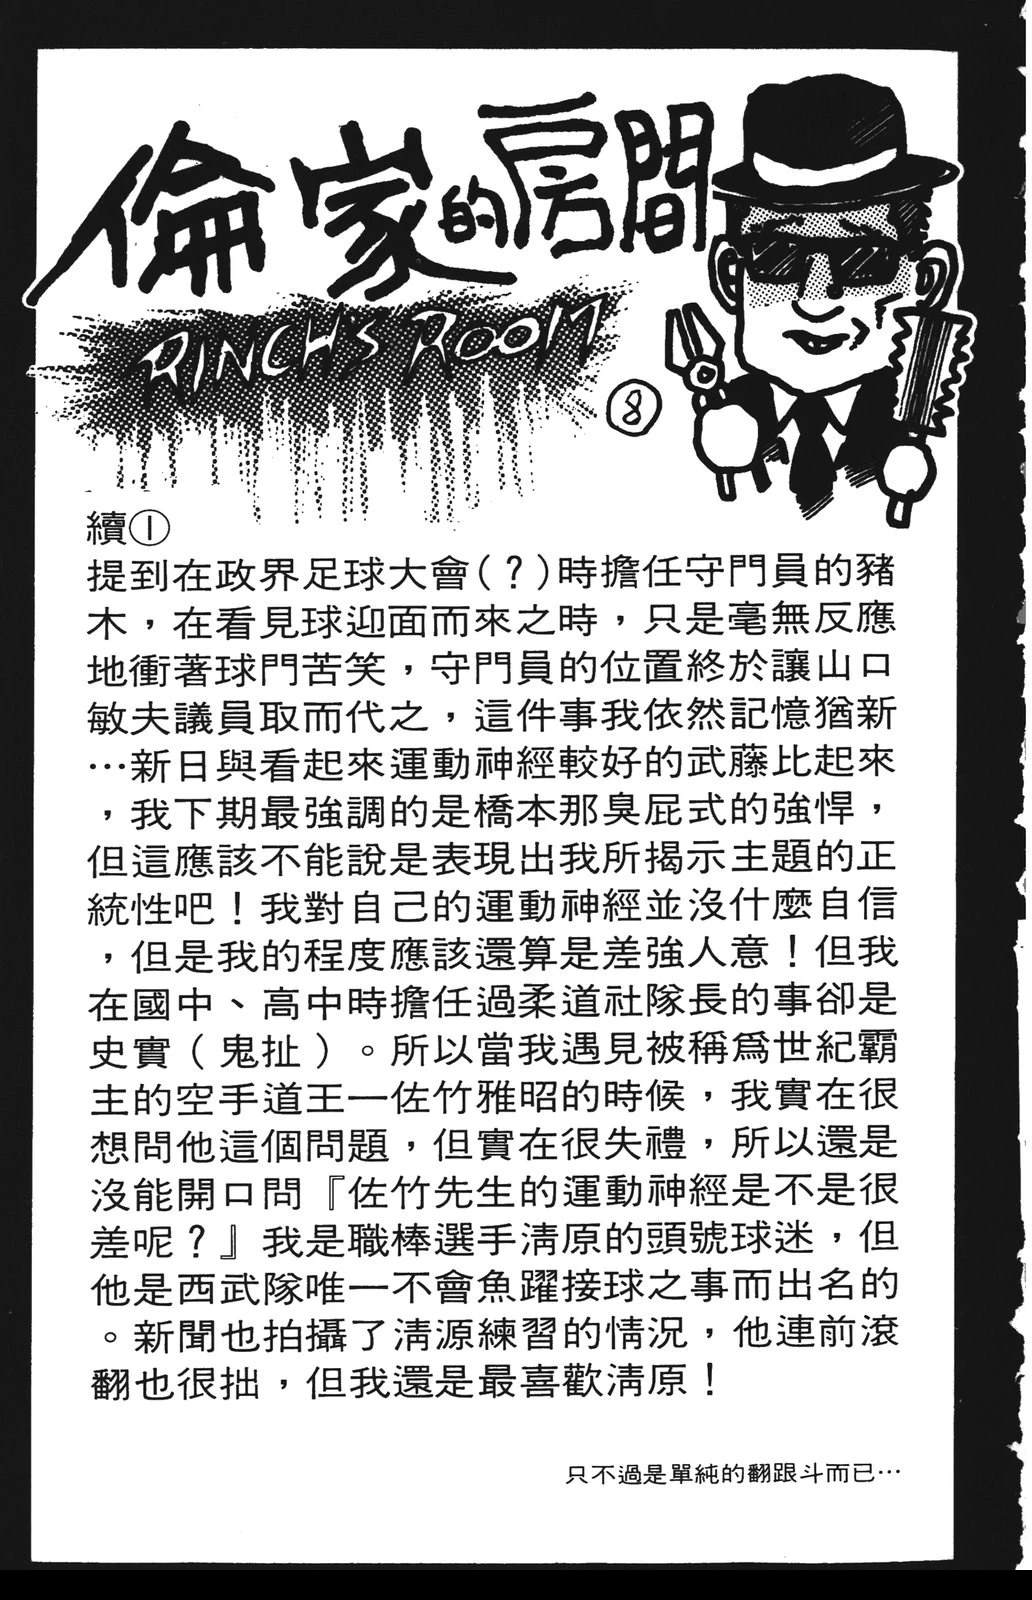 倫家的房間
RINCH'S ROOM
8
續①
提到在政界足球大會(?)時擔任守門員的豬
木，在看見球迎面而來之時，只是毫無反應
地衝著球門苦笑，守門員的位置終於讓山口
敏夫議員取而代之，這件事我依然記憶猶新
…新日與看起來運動神經較好的武藤比起來
，我下期最強調的是橋本那臭屁式的強悍，
但這應該不能說是表現出我所揭示主題的正
統性吧！我對自己的運動神經並沒什麼自信
，但是我的程度應該還算是差強人意！但我
在國中、高中時擔任過柔道社隊長的事卻是
史實（鬼扯）。所以當我遇見被稱為世紀霸
主的空手道王—佐竹雅昭的時候，我實在很
想問他這個問題，但實在很失禮，所以還是
沒能開口問『佐竹先生的運動神經是不是很
差呢？』我是職棒選手淸原的頭號球迷，但
他是西武隊唯一不會魚躍接球之事而出名的
。新聞也拍攝了淸源練習的情況，他連前滾
翻也很拙，但我還是最喜歡淸原！
只不過是單純的翻跟斗而已…